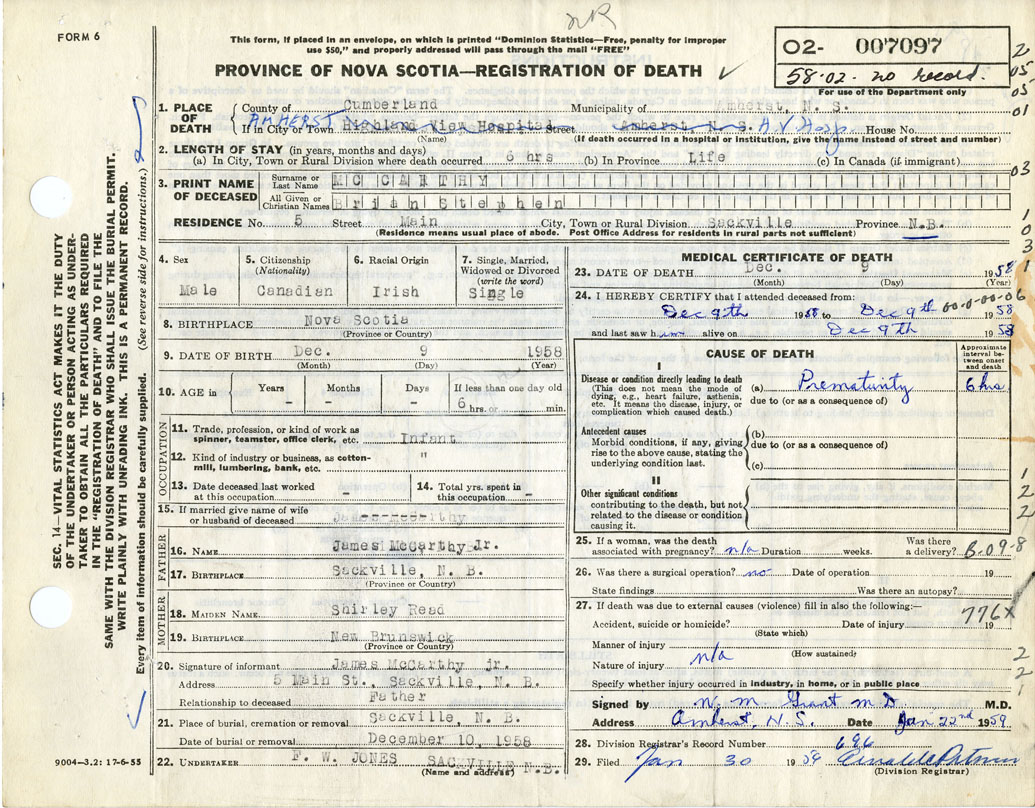 NR
FORM 6
This form, if placed in an envelope, on which is printed "Dominion Statistics—Free, penalty for improper
use $50," and properly addressed will pass through the mail "FREE"
PROVINCE OF NOVA SCOTIA—REGISTRATION OF DEATH ✓
02- 007097
58.02- no record.
For use of the Department only
2
05
05
01
03
1
0
3
1
SEC. 14—VITAL STATISTICS ACT MAKES IT THE DUTY
OF THE UNDERTAKER OR PERSON ACTING AS UNDER-
TAKER TO OBTAIN ALL THE PARTICULARS REQUIRED
IN THE "REGISTRATION OF DEATH" AND TO FILE THE
SAME WITH THE DIVISION REGISTRAR WHO SHALL ISSUE THE BURIAL PERMIT.
WRITE PLAINLY WITH UNFADING INK. THIS IS A PERMANENT RECORD.
Every item of information should be carefully supplied. (See reverse side for instructions.)
1. PLACE OF DEATH
County of Cumberland Municipality of Amherst, N. S.
AMHERST
If in City or Town Highland View Hospital Street Amherst N. S. H.V. Hosp House No.
(Name) (If death occurred in a hospital or institution, give the name instead of street and number)
2. LENGTH OF STAY (in years, months and days)
(a) In City, Town or Rural Division where death occurred 6 hrs (b) In Province Life (c) In Canada (if immigrant)
3. PRINT NAME OF DECEASED
Surname or Last Name MC CARTHY
All Given or Christian Names Brian Stephen
RESIDENCE No. 5 Street Main City, Town or Rural Division Sackville Province N.B.
(Residence means usual place of abode. Post Office Address for residents in rural parts not sufficient)
4. Sex
Male
5. Citizenship
(Nationality)
Canadian
6. Racial Origin
Irish
7. Single, Married,
Widowed or Divorced
(write the word)
Single
8. BIRTHPLACE Nova Scotia
(Province or Country)
9. DATE OF BIRTH Dec. 9 1958
(Month) (Day) (Year)
10. AGE in Years Months Days If less than one day old
- - - 6 hrs. or min.
OCCUPATION
11. Trade, profession, or kind of work as
spinner, teamster, office clerk, etc. Infant
12. Kind of industry or business, as cotton-
mill, lumbering, bank, etc. "
13. Date deceased last worked
at this occupation -
14. Total yrs. spent in
this occupation -
15. If married give name of wife
or husband of deceased James McCarthy
FATHER
16. NAME James McCarthy Jr.
17. BIRTHPLACE Sackville, N. B.
(Province or Country)
MOTHER
18. MAIDEN NAME Shirley Read
19. BIRTHPLACE New Brunswick
(Province or Country)
20. Signature of informant James McCarthy jr.
Address 5 Main St., Sackville, N. B.
Relationship to deceased Father
21. Place of burial, cremation or removal Sackville, N. B.
Date of burial or removal December 10, 1958
22. UNDERTAKER F. W. JONES SACKVILLE N.B.
(Name and address)
9004-3.2: 17-6-55
MEDICAL CERTIFICATE OF DEATH
23. DATE OF DEATH Dec. 9 1958
(Month) (Day) (Year)
24. I HEREBY CERTIFY that I attended deceased from:
Dec 9th 1958 to Dec 9th 1958
00-0-00-06
and last saw him alive on Dec 9th 1958
CAUSE OF DEATH
Approximate
interval be-
tween onset
and death
I
Disease or condition directly leading to death
(This does not mean the mode of
dying, e.g., heart failure, asthenia,
etc. It means the disease, injury, or
complication which caused death.)
(a) Prematurity 6 hrs
due to (or as a consequence of)
Antecedent causes
Morbid conditions, if any, giving
rise to the above cause, stating the
underlying condition last.
(b)
due to (or as a consequence of)
(c)
II
Other significant conditions
contributing to the death, but not
related to the disease or condition
causing it.
1
2
2
25. If a woman, was the death
associated with pregnancy? n/a Duration weeks. Was there
a delivery? B-09-8
26. Was there a surgical operation? no Date of operation 19
State findings Was there an autopsy?
27. If death was due to external causes (violence) fill in also the following:—
776X
Accident, suicide or homicide? Date of injury 19
(State which)
Manner of injury
n/a (How sustained)
Nature of injury
2
2
1
Specify whether injury occurred in industry, in home, or in public place
Signed by W. M. Grant M D. M.D.
Address Amherst, N. S. Date Jan 22nd 1959
28. Division Registrar's Record Number 696
29. Filed Jan 30 1959
(Division Registrar)